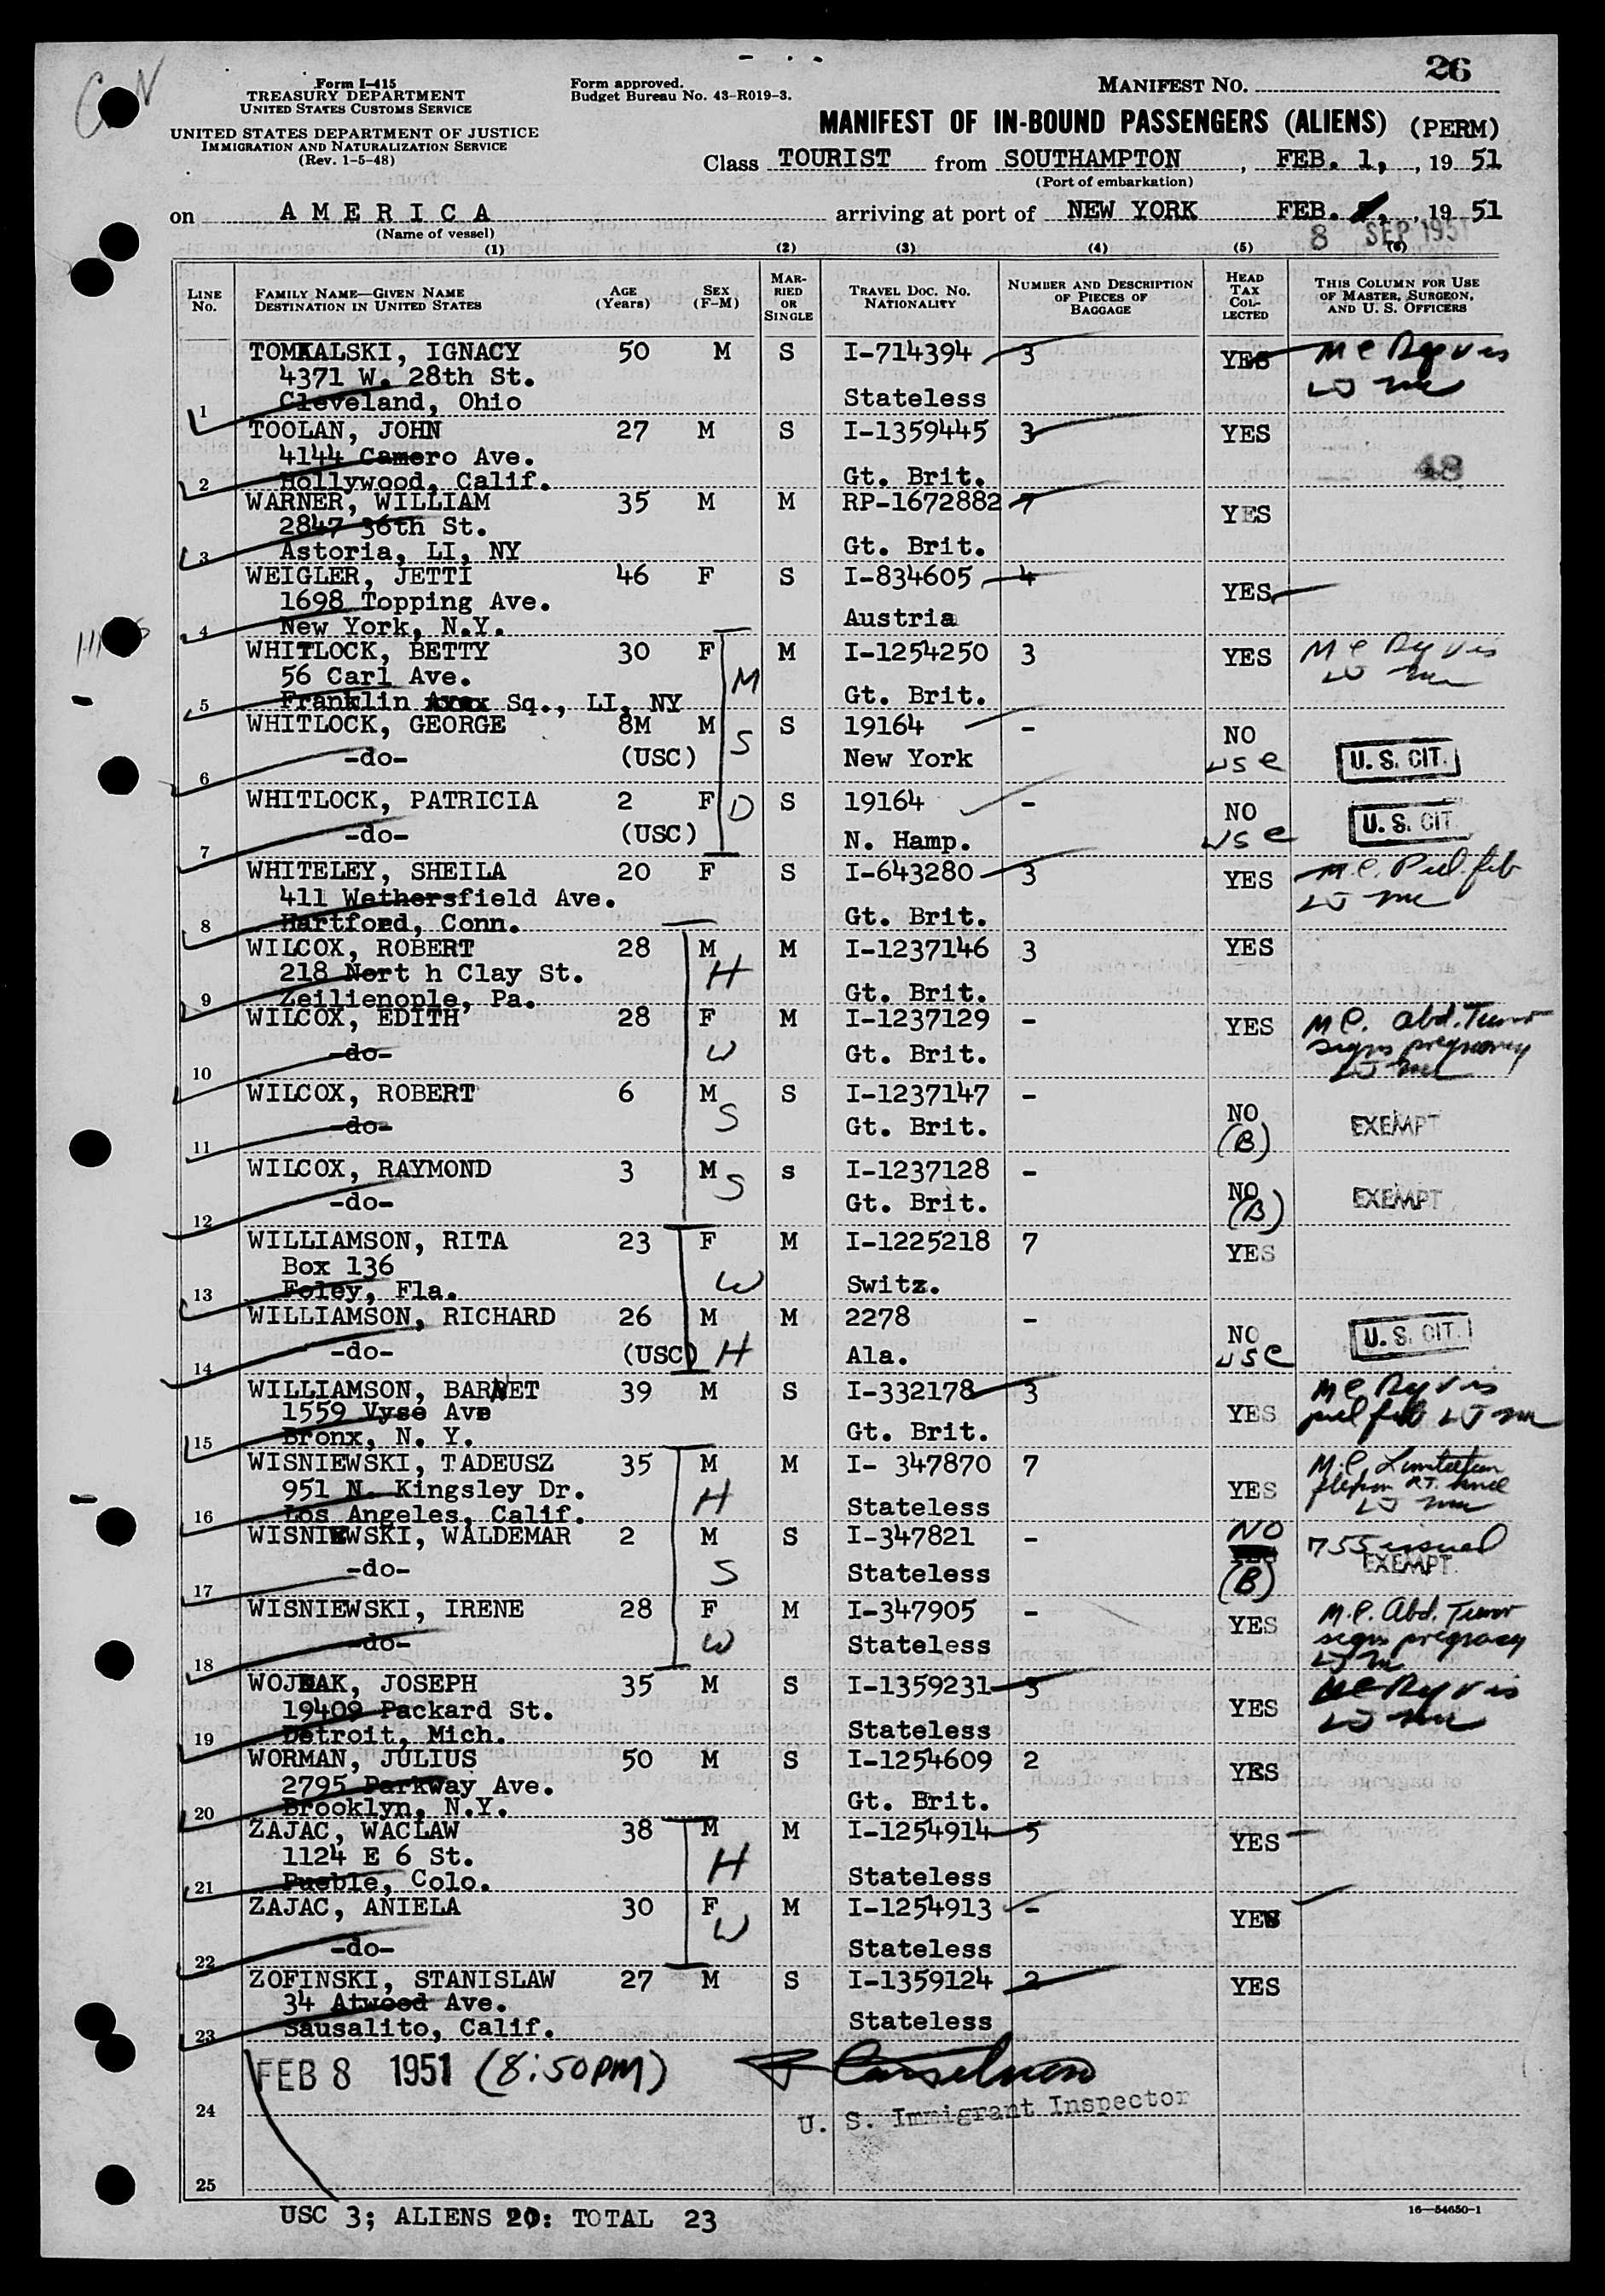 26
Form I-415
TREASURY DEPARTMENT
UNITED STATES CUSTOMS SERVICE
Form approved.
Budget Bureau No. 43-R019-3.
MANIFEST NO.
UNITED STATES DEPARTMENT OF JUSTICE
IMMIGRATION AND NATURALIZATION SERVICE
(Rev. 1-5-48)
MANIFEST OF IN-BOUND PASSENGERS (ALIENS) (PERM)
Class TOURIST from SOUTHAMPTON, FEB. 1, 19 51
(Port of embarkation)
on AMERICA arriving at port of NEW YORK FEB. 19 51
(Name of vessel)
8 SEP 1951
(1) (2) (3) (4) (5) (6)
LINE No. FAMILY NAME—GIVEN NAME DESTINATION IN UNITED STATES AGE (Years) SEX (F-M) MARRIED OR SINGLE TRAVEL DOC. NO. NATIONALITY NUMBER AND DESCRIPTION OF PIECES OF BAGGAGE HEAD TAX COLLECTED THIS COLUMN FOR USE OF MASTER, SURGEON, AND U. S. OFFICERS
TOMKALSKI, IGNACY 50 M S I-714394 3 YES
4371 W. 28th St.
1 Cleveland, Ohio Stateless
TOOLAN, JOHN 27 M S I-1359445 3 YES
4144 Camero Ave. 48
2 Hollywood, Calif. Gt. Brit.
WARNER, WILLIAM 35 M M RP-1672882 7 YES
2847 36th St.
3 Astoria, LI, NY Gt. Brit.
WEIGLER, JETTI 46 F S I-834605 4 YES
1698 Topping Ave.
4 New York, N.Y. Austria
WHITLOCK, BETTY 30 F M I-1254250 3 YES
56 Carl Ave. M
5 Franklin Sq., LI, NY Gt. Brit.
WHITLOCK, GEORGE 8M M S S 19164 - NO
6 -do- (USC) New York usc U. S. CIT.
WHITLOCK, PATRICIA 2 F D S 19164 - NO
7 -do- (USC) N. Hamp. usc U. S. CIT.
WHITELEY, SHEILA 20 F S I-643280 3 YES
411 Wethersfield Ave.
8 Hartford, Conn. Gt. Brit.
WILCOX, ROBERT 28 M M I-1237146 3 YES
218 Nort h Clay St. H
9 Zeilienople, Pa. Gt. Brit.
WILCOX, EDITH 28 F M I-1237129 - YES M C. Abd. Tumor
10 -do- W Gt. Brit. signs pregnancy
WILCOX, ROBERT 6 M S I-1237147 - NO
11 -do- S Gt. Brit. (B) EXEMPT
WILCOX, RAYMOND 3 M s I-1237128 - NO
12 -do- S Gt. Brit. (B) EXEMPT
WILLIAMSON, RITA 23 F M I-1225218 7 YES
Box 136
13 Foley, Fla. W Switz.
WILLIAMSON, RICHARD 26 M M 2278 - NO
14 -do- (USC) H Ala. usc U. S. CIT.
WILLIAMSON, BARNET 39 M S I-332178 3 YES
1559 Vyse Ave
15 Bronx, N. Y. Gt. Brit.
WISNIEWSKI, TADEUSZ 35 M M I- 347870 7 YES
951 N. Kingsley Dr. H
16 Los Angeles, Calif. Stateless
WISNIEWSKI, WALDEMAR 2 M S I-347821 - NO 755 issued
17 -do- S Stateless (B) EXEMPT
WISNIEWSKI, IRENE 28 F M I-347905 - YES M.C. Abd. Tumor
18 -do- W Stateless signs pregnancy
WOJNAK, JOSEPH 35 M S I-1359231 3 YES
19409 Packard St.
19 Detroit, Mich. Stateless
WORMAN, JULIUS 50 M S I-1254609 2 YES
2795 Parkway Ave.
20 Brooklyn, N.Y. Gt. Brit.
ZAJAC, WACLAW 38 M M I-1254914 5 YES
1124 E 6 St. H
21 Pueble, Colo. Stateless
ZAJAC, ANIELA 30 F M I-1254913 - YES
22 -do- W Stateless
ZOFINSKI, STANISLAW 27 M S I-1359124 2 YES
34 Atwood Ave.
23 Sausalito, Calif. Stateless
FEB 8 1951 (8:50PM)
24 U. S. Immigrant Inspector
25
USC 3; ALIENS 20: TOTAL 23
16—54650-1